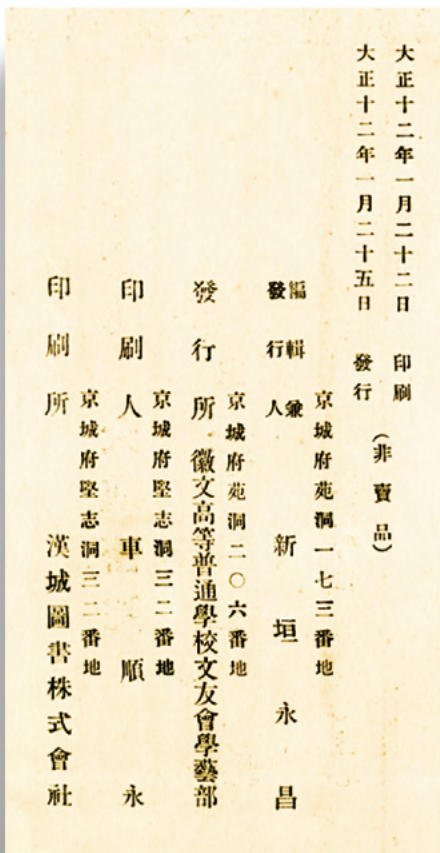 大正十二年一月二十二日 印刷
大正十二年一月二十五日 發行
(非賣品)
京城府苑洞一七三番地
編輯兼
發行人 新垣永昌
京城府苑洞二〇六番地
發行所 徽文高等普通學校文友會學藝部
京城府堅志洞三二番地
印刷人 車順永
京城府堅志洞三二番地
印刷所 漢城圖書株式會社